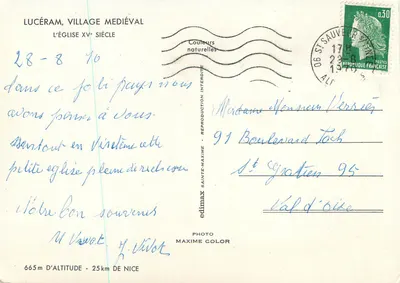 LUCÉRAM, VILLAGE MEDIÉVAL
L'ÉGLISE XVᵉ SIÈCLE
28-8 70
dans ce joli pays nous
avons pensé à vous.
en visitant cette
petite église pleine de richesses
Notre bon souvenir
665 m D'ALTITUDE - 25 km DE NICE
Couleurs
naturelles
REPRODUCTION INTERDITE
edimax
SAINTE-MAXIME
PHOTO
MAXIME COLOR
06 ST SAUVEUR
17 H
0,30
REPUBLIQUE FRANÇAISE
Madame Monsieur
91 Boulevard Foch
St Gratien 95
Val d'Oise